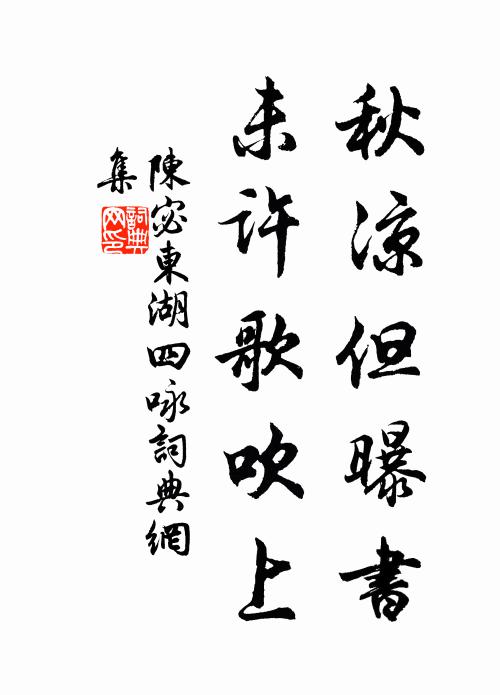 秋凉但曝書
未許歌吹上
陳宓東湖四咏詞典網
集
詞典網印